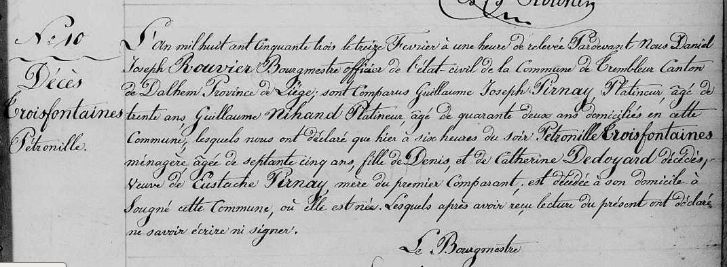 No 10
Décès
Troisfontaines
Pétronille.
L'an mil huit cent Cinquante trois le treize Fevrier à une heure de relevée Pardevant Nous Daniel
Joseph Rouvier Bourgmestre officier de l'état-civil de la Commune de Trembleur Canton
de Dalhem Province de Liège; sont Comparus Guillaume Joseph Pirnay, Platineur âgé de
trente ans Guillaume Nihand Platineur, âgé de quarante deux ans domiciliés en cette
Commune, lesquels nous ont déclaré que hier à six heures du soir Pétronille Troisfontaines
ménagère âgée de septante cinq ans, fille de Denis, et de Catherine Dedoyard décédés,
Veuve de Eustache Pirnay, mere du premier Comparant, est décédée à son domicile à
Sougné cette Commune, où elle est née. Lesquels après avoir reçu lecture du présent ont déclaré
ne savoir écrire ni signer.
Le Bourgmestre